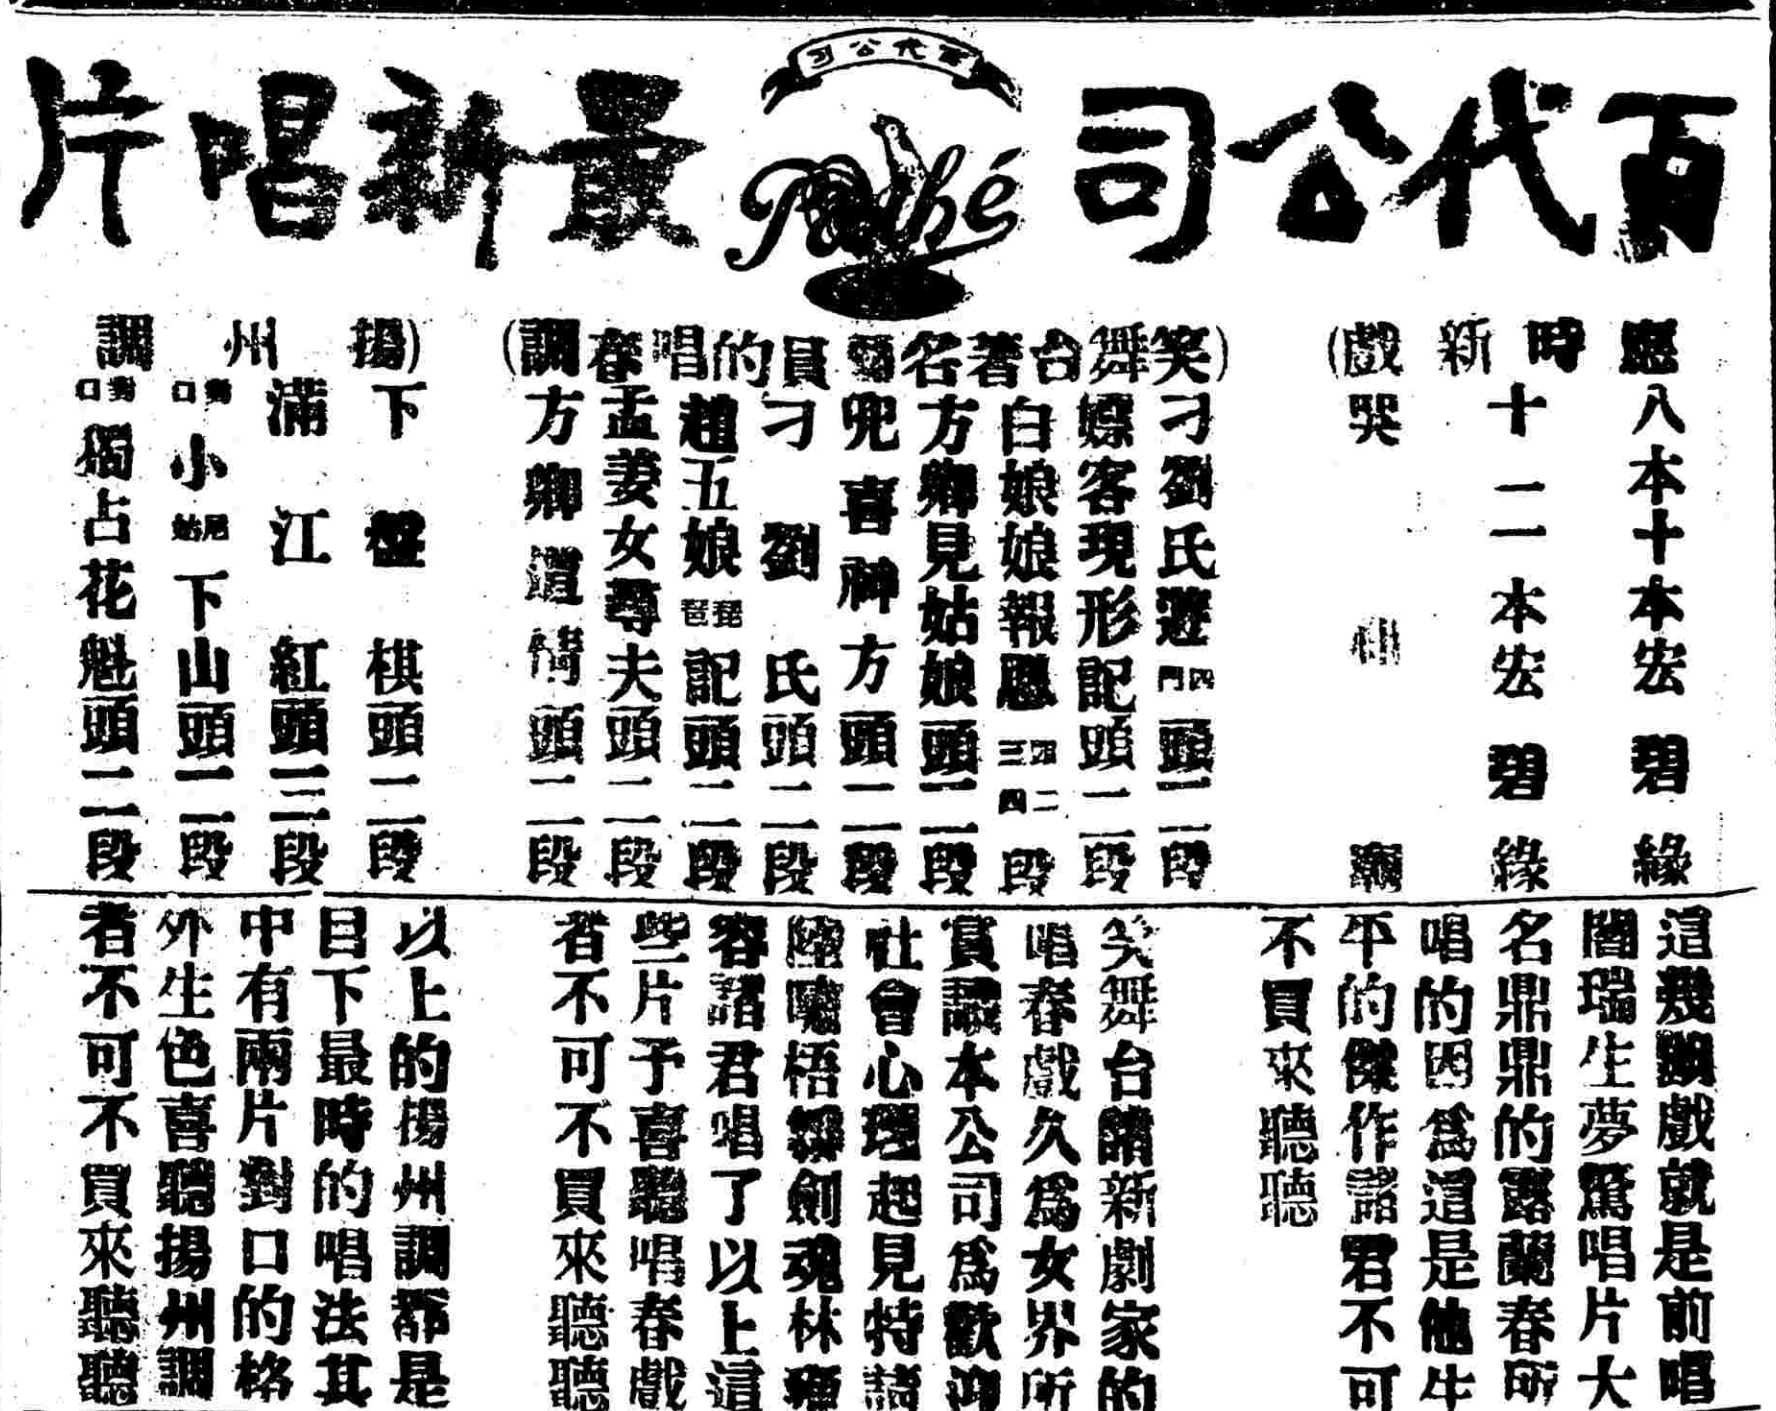 百代公司
百代公司
Pathé
最新唱片
應時新戲
八本十本宏碧緣
十二本宏碧緣
哭廟
笑舞台著名員的唱春調
刁劉氏遊四門頭二段
嫖客現形記頭二段
白娘娘報恩三四段
方卿見姑娘頭二段
兜喜神方頭二段
刁劉氏頭二段
趙五娘琵琶記頭二段
孟姜女尋夫頭二段
方卿道情頭二段
揚州調
下盤棋頭二段
滿江紅頭二三段
對口小尼姑下山頭二段
對口獨占花魁頭二段
這幾齣戲就是前唱
閻瑞生夢驚唱片大
名鼎鼎的露蘭春所
唱的因爲這是他生
平的傑作諸君不可
不買來聽聽
笑舞台諸新劇家的
唱春戲久爲女界所
賞識本公司爲歡迎
社會心理起見特請
陸嘯梧鄒劍魂林
容諸君唱了以上這
些片予喜聽唱春戲
者不可不買來聽聽
以上的揚州調都是
目下最時的唱法其
中有兩片對口的格
外生色喜聽揚州調
者不可不買來聽聽